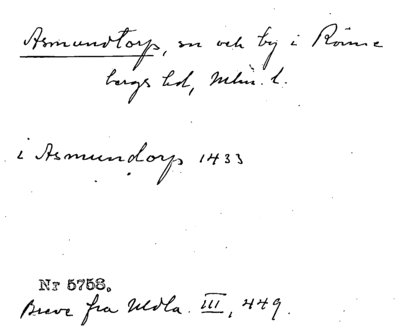 Asmundtorp, sn och by i Rönne
bergs hd, Mlm. l.
i Asmundorp 1433
Nr 5758.
Breve fra Mdla. III, 449.